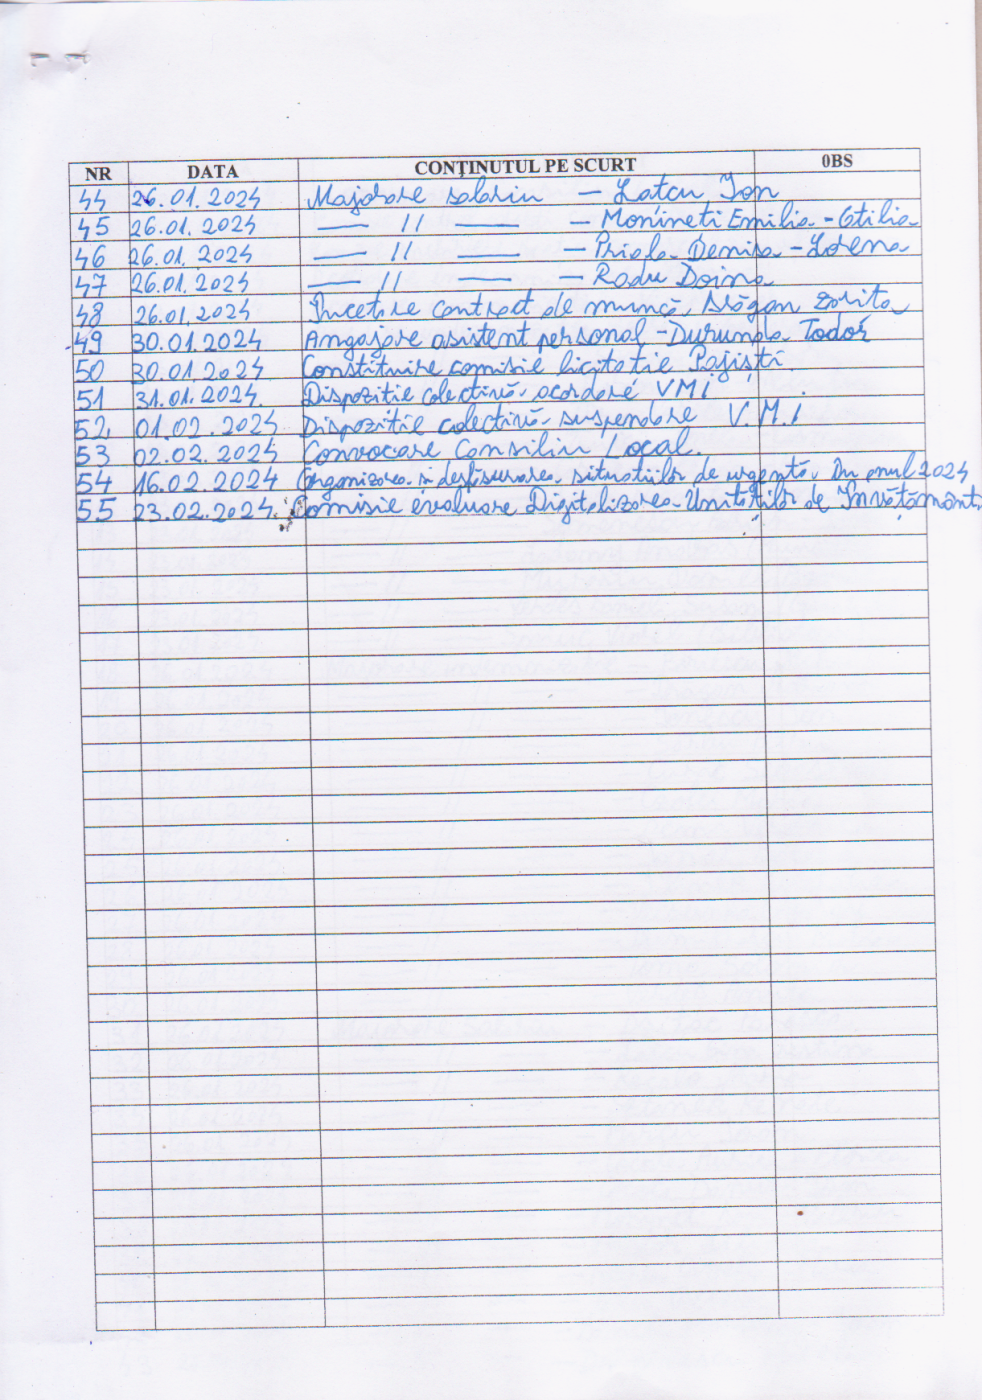 NR DATA CONȚINUTUL PE SCURT 0BS
44 26.01.2024 Majorare salariu — Latcu Ion
45 26.01.2024 — // — — Monineti Emilia-Otilia
46 26.01.2024 — // — — Priala Denisa-Lorena
47 26.01.2024 — // — — Radu Doina
48 26.01.2024 Încetare contract de muncă, Zorița
49 30.01.2024 Angajare asistent personal - Durumba Todor
50 30.01.2024 Constituire comisie licitatie Pajiști
51 31.01.2024. Dispozitie colectivă acordare VMI
52 01.02.2024 Dispozitie colectivă suspendare V.M.I
53 02.02.2024 Convocare Consiliu Local.
54 16.02.2024 Organizarea și desfăsurarea situatiilor de urgentă în anul 2024
55 23.02.2024. Comisie evaluare Digitalizarea Unitătilor de Învătământ